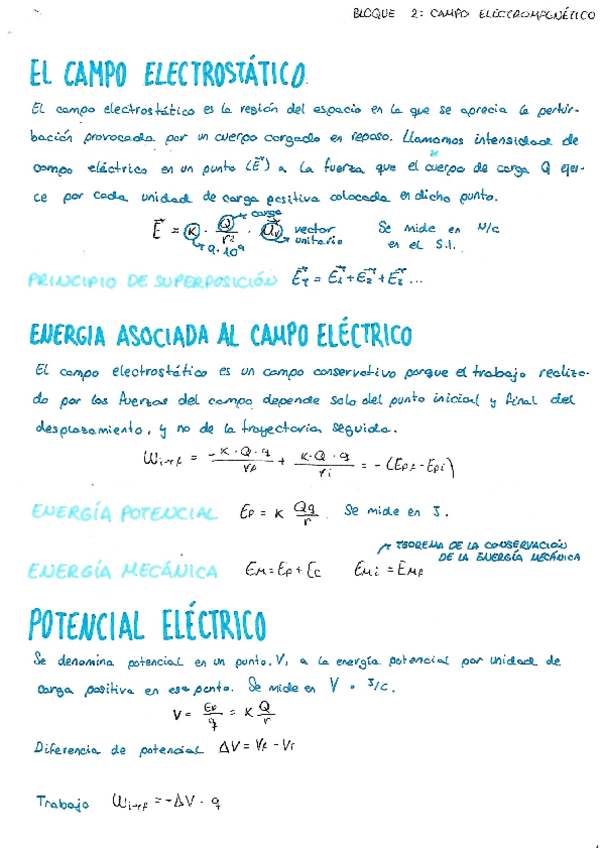 BLOQUE 2: CAMPO ELECTROMAGNÉTICO
EL CAMPO ELECTROSTÁTICO.
El campo electrostático es la región del espacio en la que se aprecia la pertur-
bación provocada por un cuerpo cargado en reposo. Llamamos intensidad de
campo eléctrico en un punto (E⃗) a la fuerza que el cuerpo de carga Q ejer-
ce por cada unidad de carga positiva colocada en dicho punto.
E⃗ = K · Q/r² · u⃗ᵣ
carga
vector unitario
9·10⁹
Se mide en N/C
en el S.I.
PRINCIPIO DE SUPERPOSICIÓN E⃗T = E⃗1 + E⃗2 + E⃗2 ...
ENERGIA ASOCIADA AL CAMPO ELÉCTRICO
El campo electrostático es un campo conservativo porque el trabajo realiza-
do por las fuerzas del campo depende solo del punto inicial y final del
desplazamiento, y no de la trayectoria seguida.
Wi→f = -K·Q·q/rf + K·Q·q/ri = -(Epf - Epi)
ENERGÍA POTENCIAL Ep = K Qq/r Se mide en J.
TEOREMA DE LA CONSERVACIÓN
DE LA ENERGÍA MECÁNICA
ENERGÍA MECÁNICA EM = Ep + Ec EMi = EMf
POTENCIAL ELÉCTRICO
Se denomina potencial en un punto, V, a la energía potencial por unidad de
carga positiva en ese punto. Se mide en V o J/C.
V = Ep/q = K Q/r
Diferencia de potencial ΔV = Vf - Vi
Trabajo Wi→f = -ΔV · q